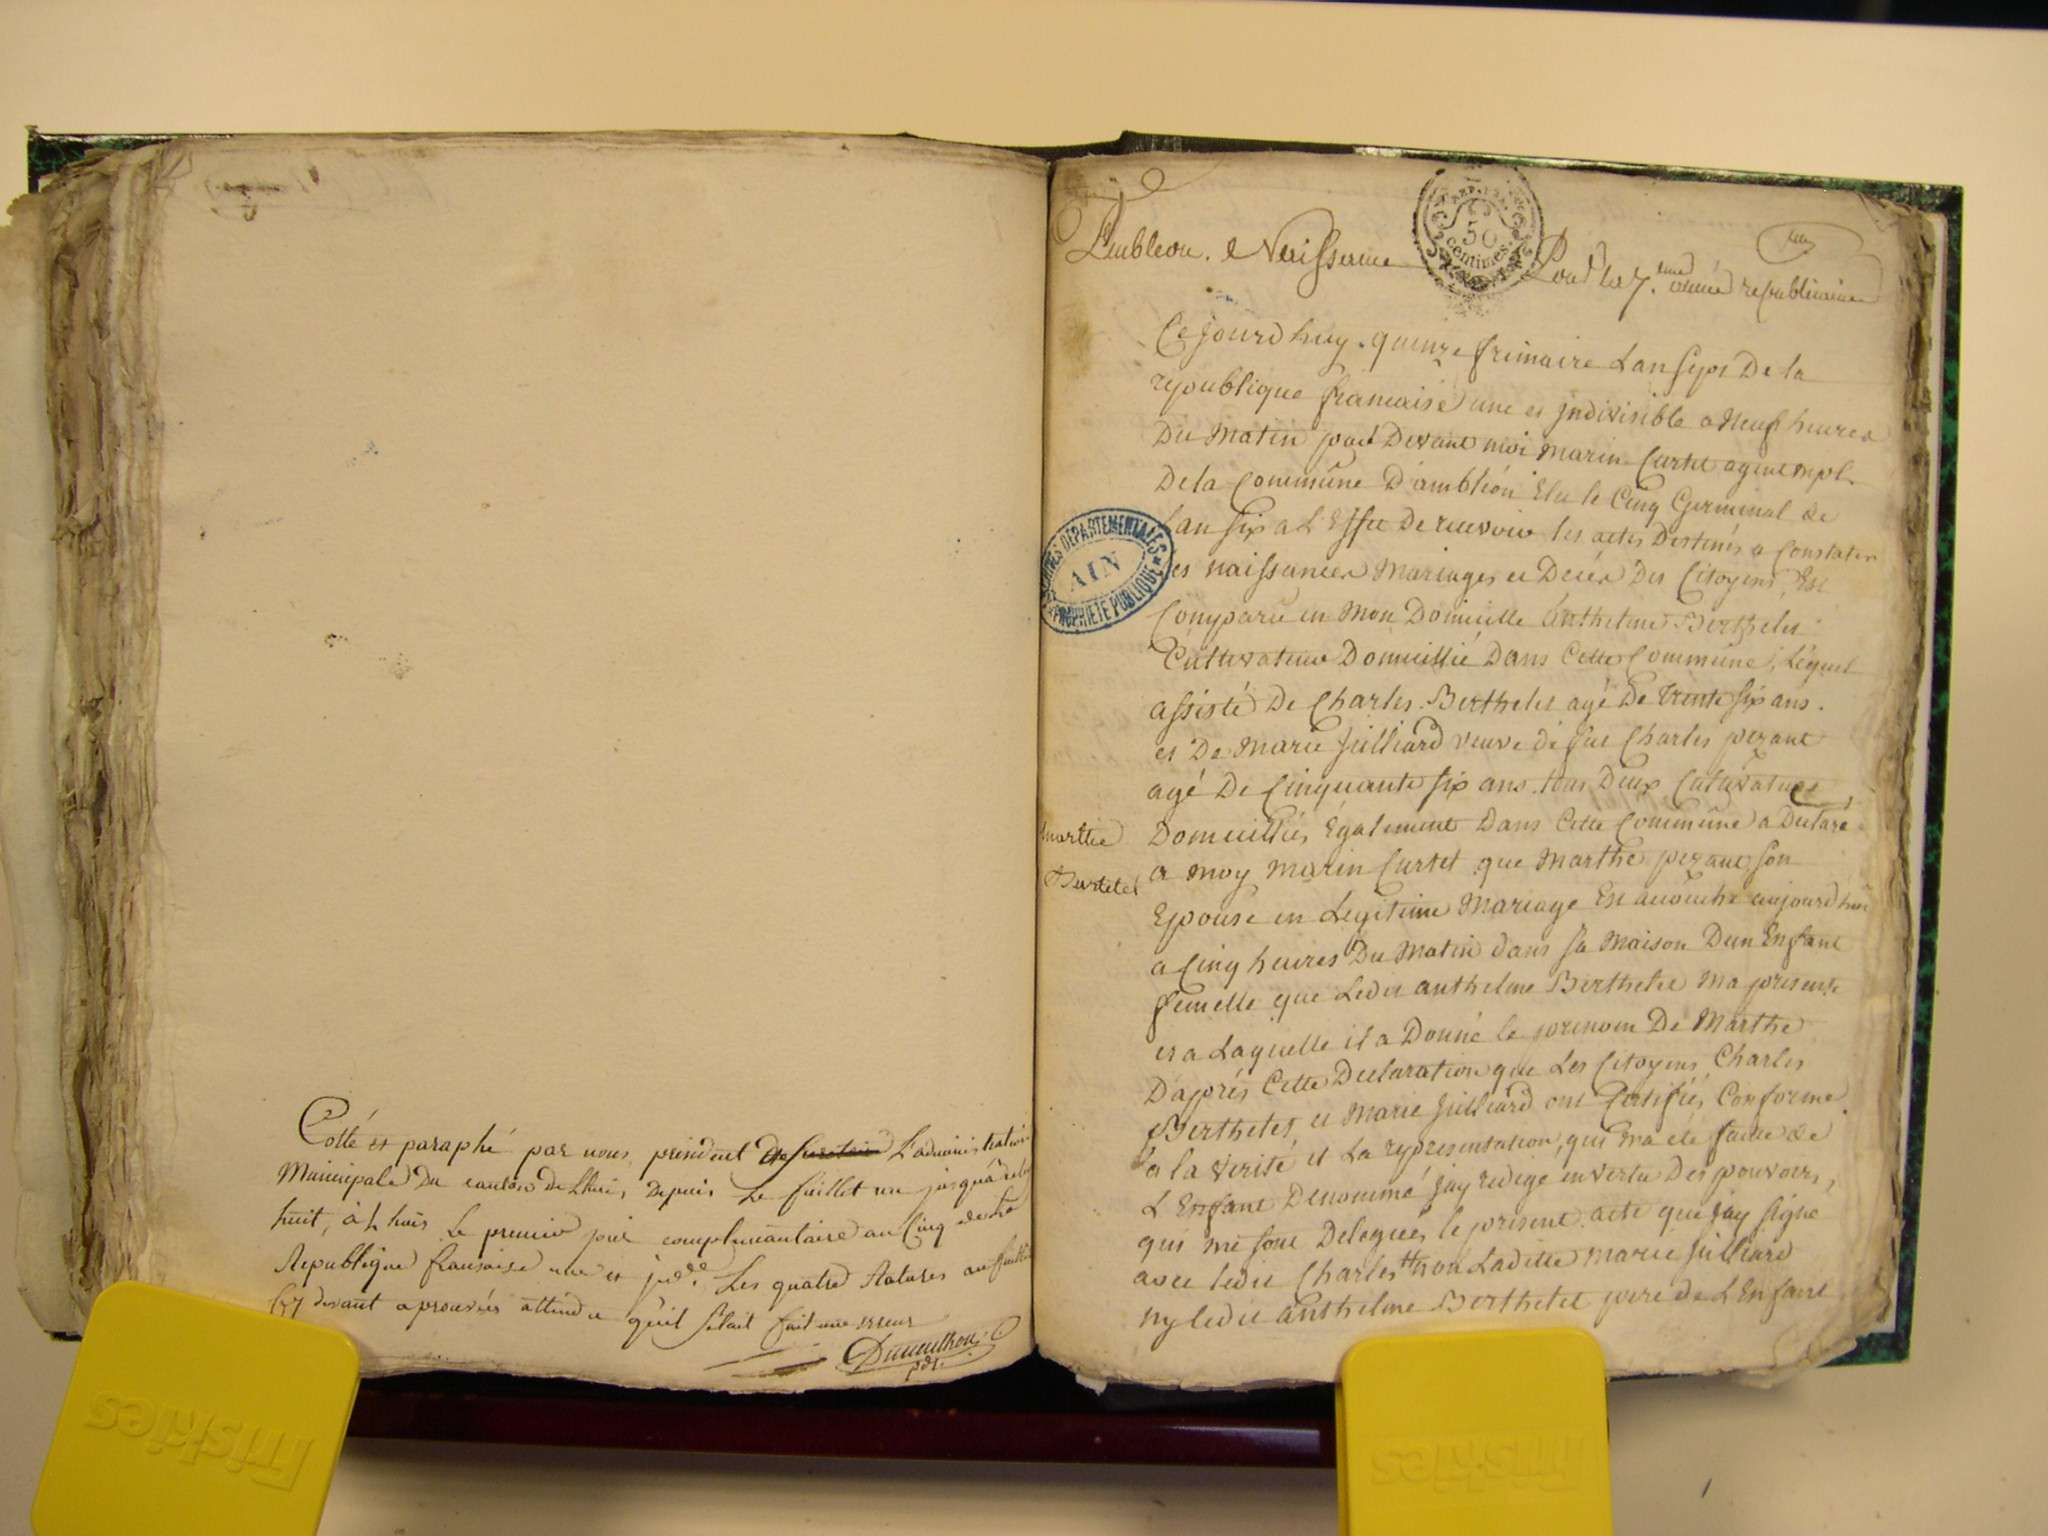 Cotté et paraphé par nous president de secretaire L'administration
Municipale Du canton de Lhuis, Depuis Le fuillet un jusqu'à
huit, à Lhuis Le premier jour complimantaire an Cinq de la
Republique fransaise une et Les quatre Ratures au fuillet
devant aprouvées attendu qu'il s'etait fait une erreur
Dumolthou
pdt.
Ambleon. Naissance
REP. FRA.
50
centimes
Pour la 7.eme année republicaine
Cejourdhuy quinze frimaire Lan sept De la
republique francaise une et jndivisible a Neuf heures
Du Matin par Devant moi Marin Curtet agent mpl.
De la Commune D'ambléon Elu le Cinq Germinal de
Lan six a L'Effet De recevoir les actes Destinés a Constater
les naissances Mariages et Decés Des Citoyens, Est
Comparu en Mon Domicille Anthelme Berthelet
Cultivateur Domicillié Dans Cette Commune, Lequel
assisté De Charles Berthelet agé De trente six ans.
et De Marie Juilliard veuve de feu Charles pezant
agé De Cinquante six ans tous Deux Cultivateurs
Domicilliés Egalement Dans Cette Commune a Declaré
a moy Marin Curtet que Marthe pezant son
Epouse en Legitime Mariage Est accouché aujourdhui
a Cinq heures Du Matin dans sa Maison D'un Enfant
femelle que Ledit anthelme Berthelet Ma presenté
et a Laquelle il a Donné le prenom De Marthe
D'aprés Cette Declaration que Les Citoyens Charles
Berthelet et Marie Juilliard ont Certifiés Conforme
a la Verité et La representation, qui m'a eté faitte de
L'Enfant Denommé jay redigé en vertu Des pouvoirs,
qui me sont Delegués le present acte que jay signé
avec ledit Charles non Laditte Marie Juilliard
ny ledit anthelme Berthelet pere de L'Enfant
Marthe
Bertelet
ARCHIVES DEPARTEMENTALES
AIN
PROPRIETE PUBLIQUE
Friskies
Friskies